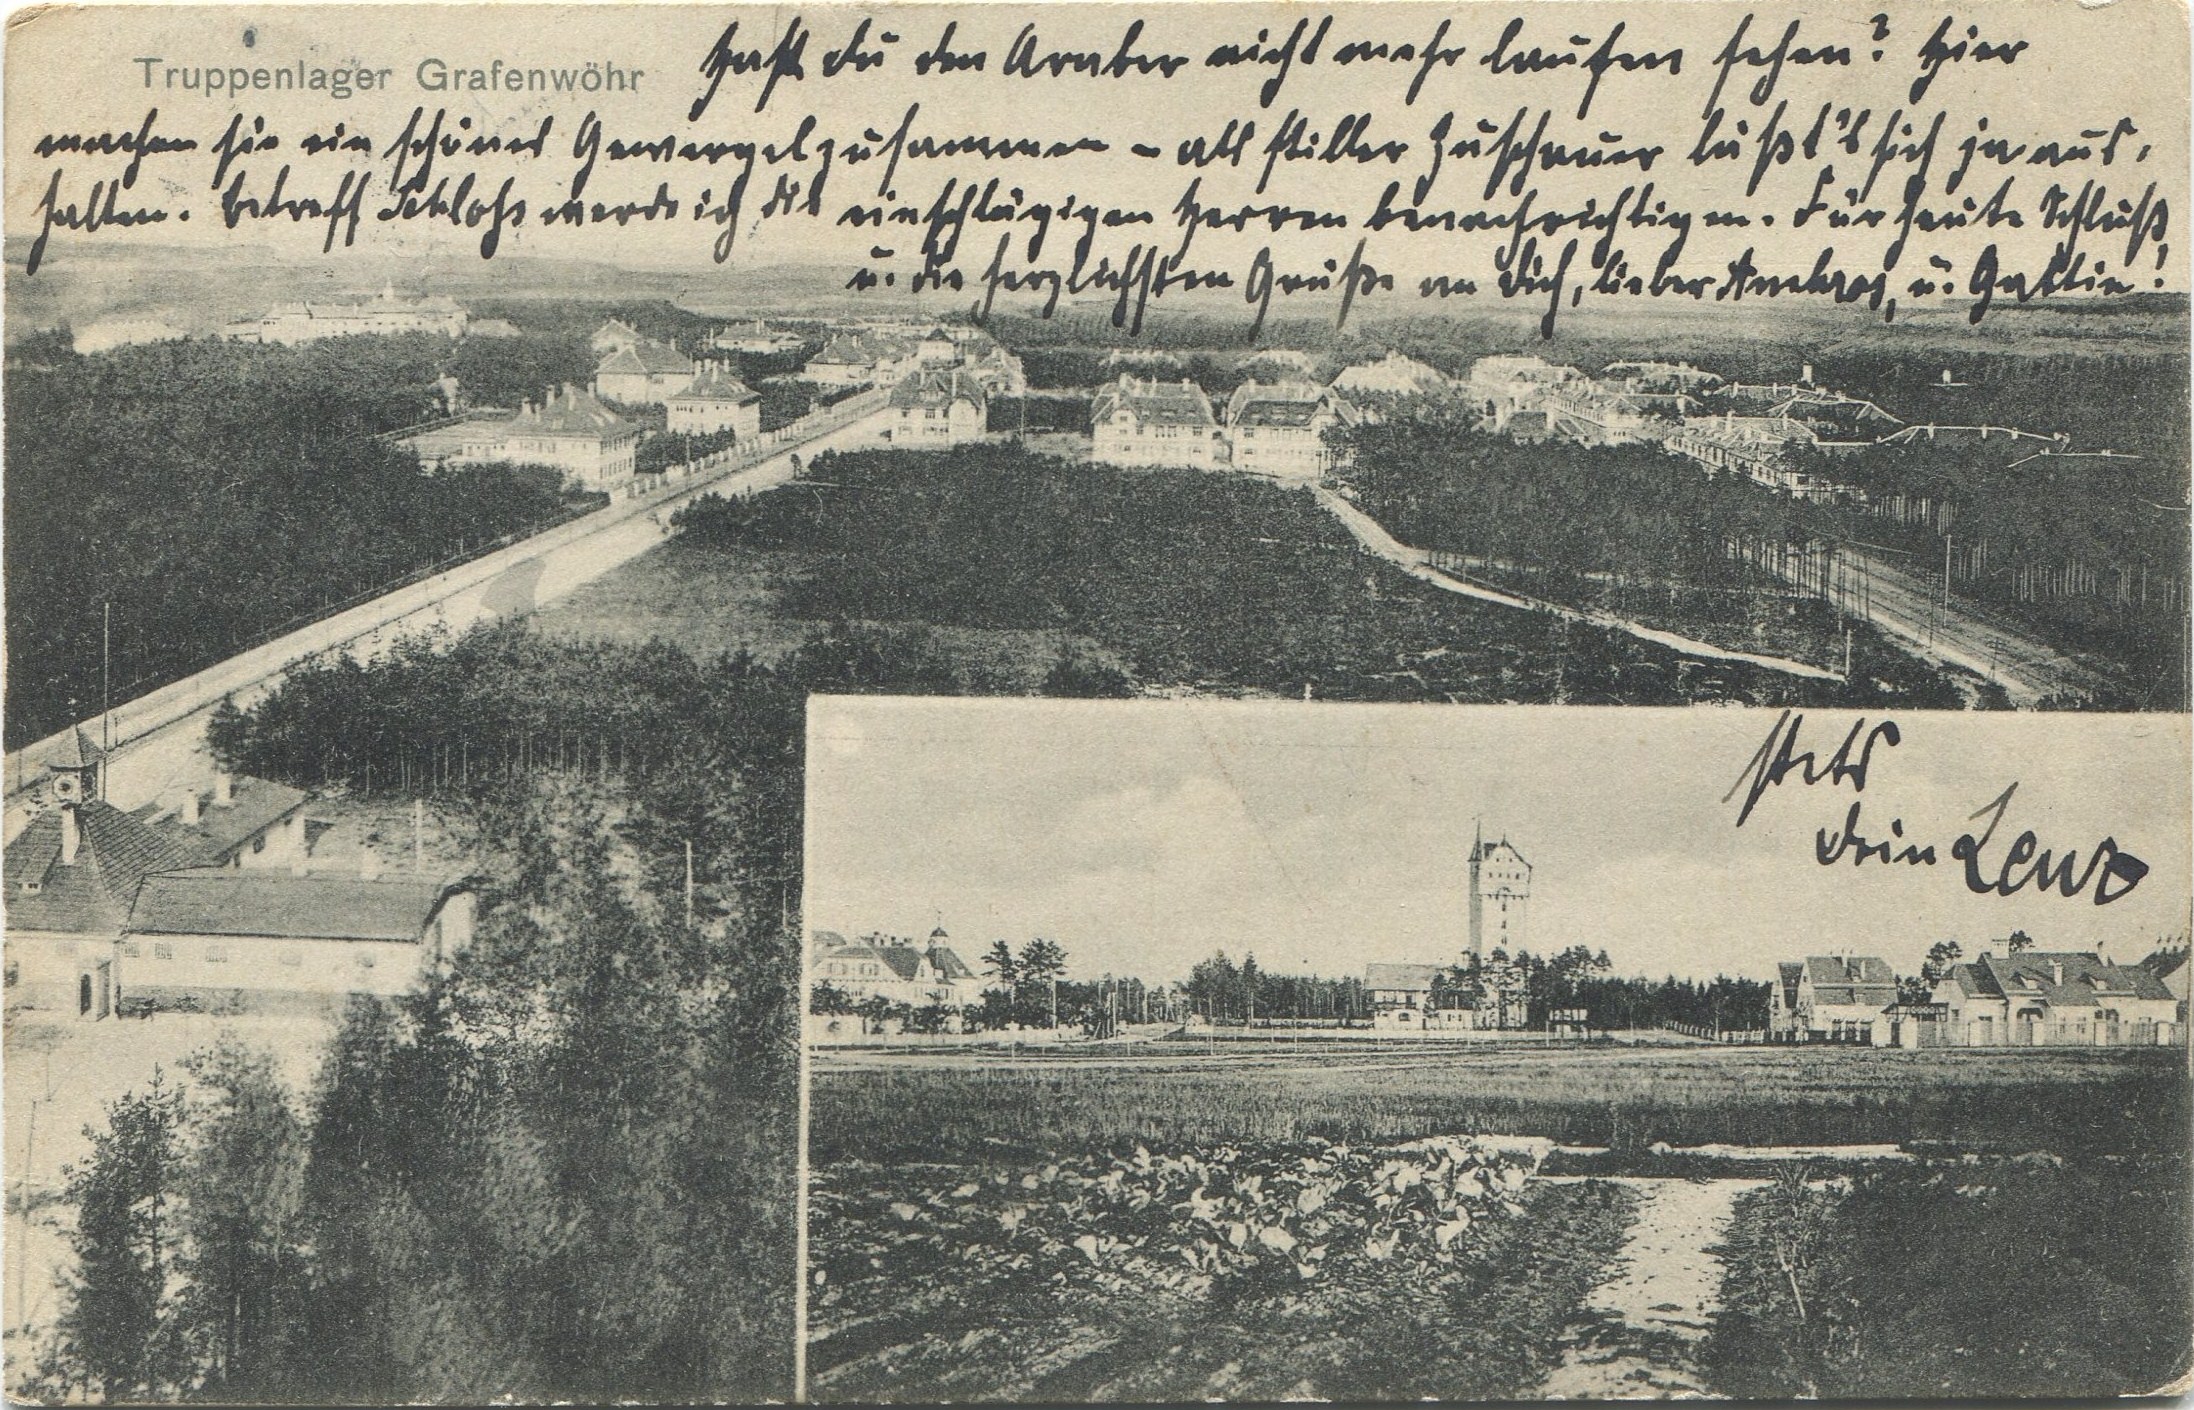 Truppenlager Grafenwöhr
Hast du den Araber nicht mehr laufen sehen? Hier
machen sie ein schönes Gewergel zusammen – als stiller Zuschauer läßt's sich ja aus-
halten. Betreff Schloß werde ich die einschlägigen Herren benachrichtigen. Für heute Schluß
u. die herzlichsten Grüße an Dich, lieber u. Gattin!
stets
Dein Lenz